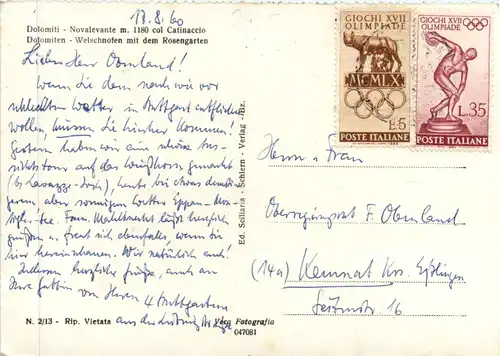 18.8.60
Dolomiti - Novalevante m. 1180 col Catinaccio
Dolomiten - Welschnofen mit dem Rosengarten
Lieber Herr Obenland!
Wenn Sie dem nach wie vor
schlechten Wetter in Stuttgart entfliehen
wollen, müssen Sie hierher kommen!
Gestern haben wir eine schöne Aus-
sichtstour auf das Weißhorn gemacht
heute bei etwas
aber sonnigem Wetter Eppan-
Fam. läßt herzlich
grüßen u. freut sich ebenfalls, wenn Sie
hier hereinschauen. Wir natürlich auch!
Indessen herzliche Grüße, auch an
Ihre Gattin von Ihren 4 Stuttgartern
aus der
N. 2/13 - Rip. Vietata
Vera Fotografia
047081
Ed. Sciliaria - Schlern - Verlag - Bz.
GIOCHI XVII
OLIMPIADE
MCMLX
L.5
POSTE ITALIANE
GIOCHI XVII
OLIMPIADE
L.35
POSTE ITALIANE
Herrn u. Frau
F. Obenland
(14a) Kemnat Krs. Eßlingen
16